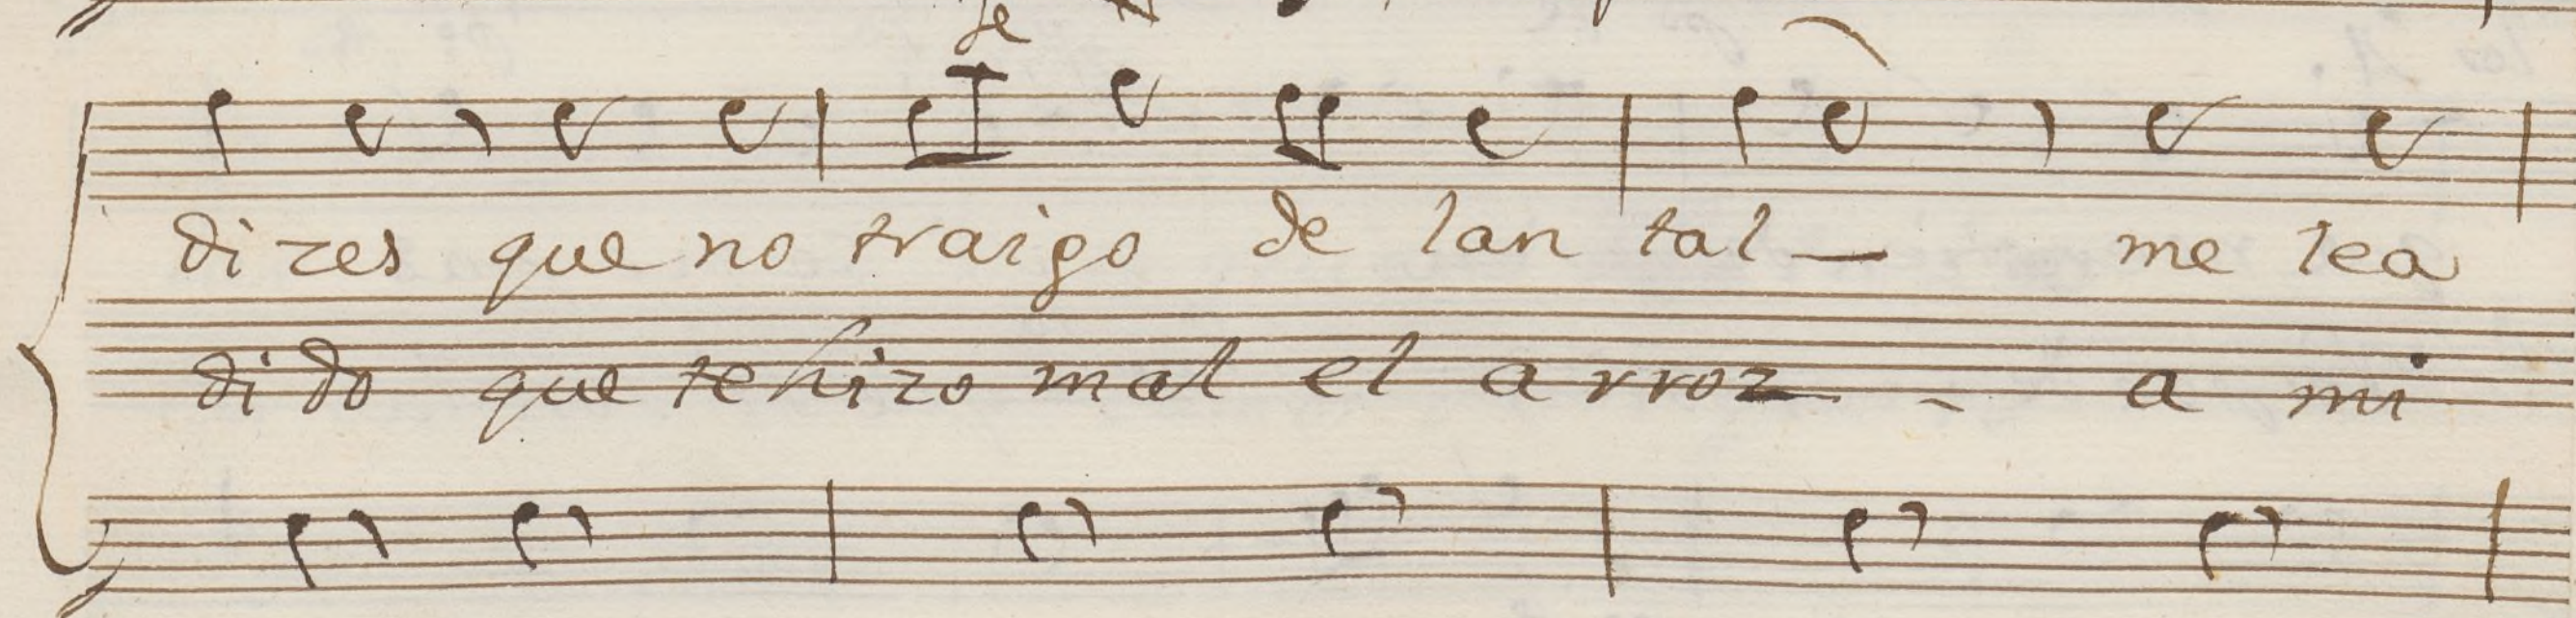 di zes que no traigo de lan tal me lea
di do que te hizo mal el arroz a mi